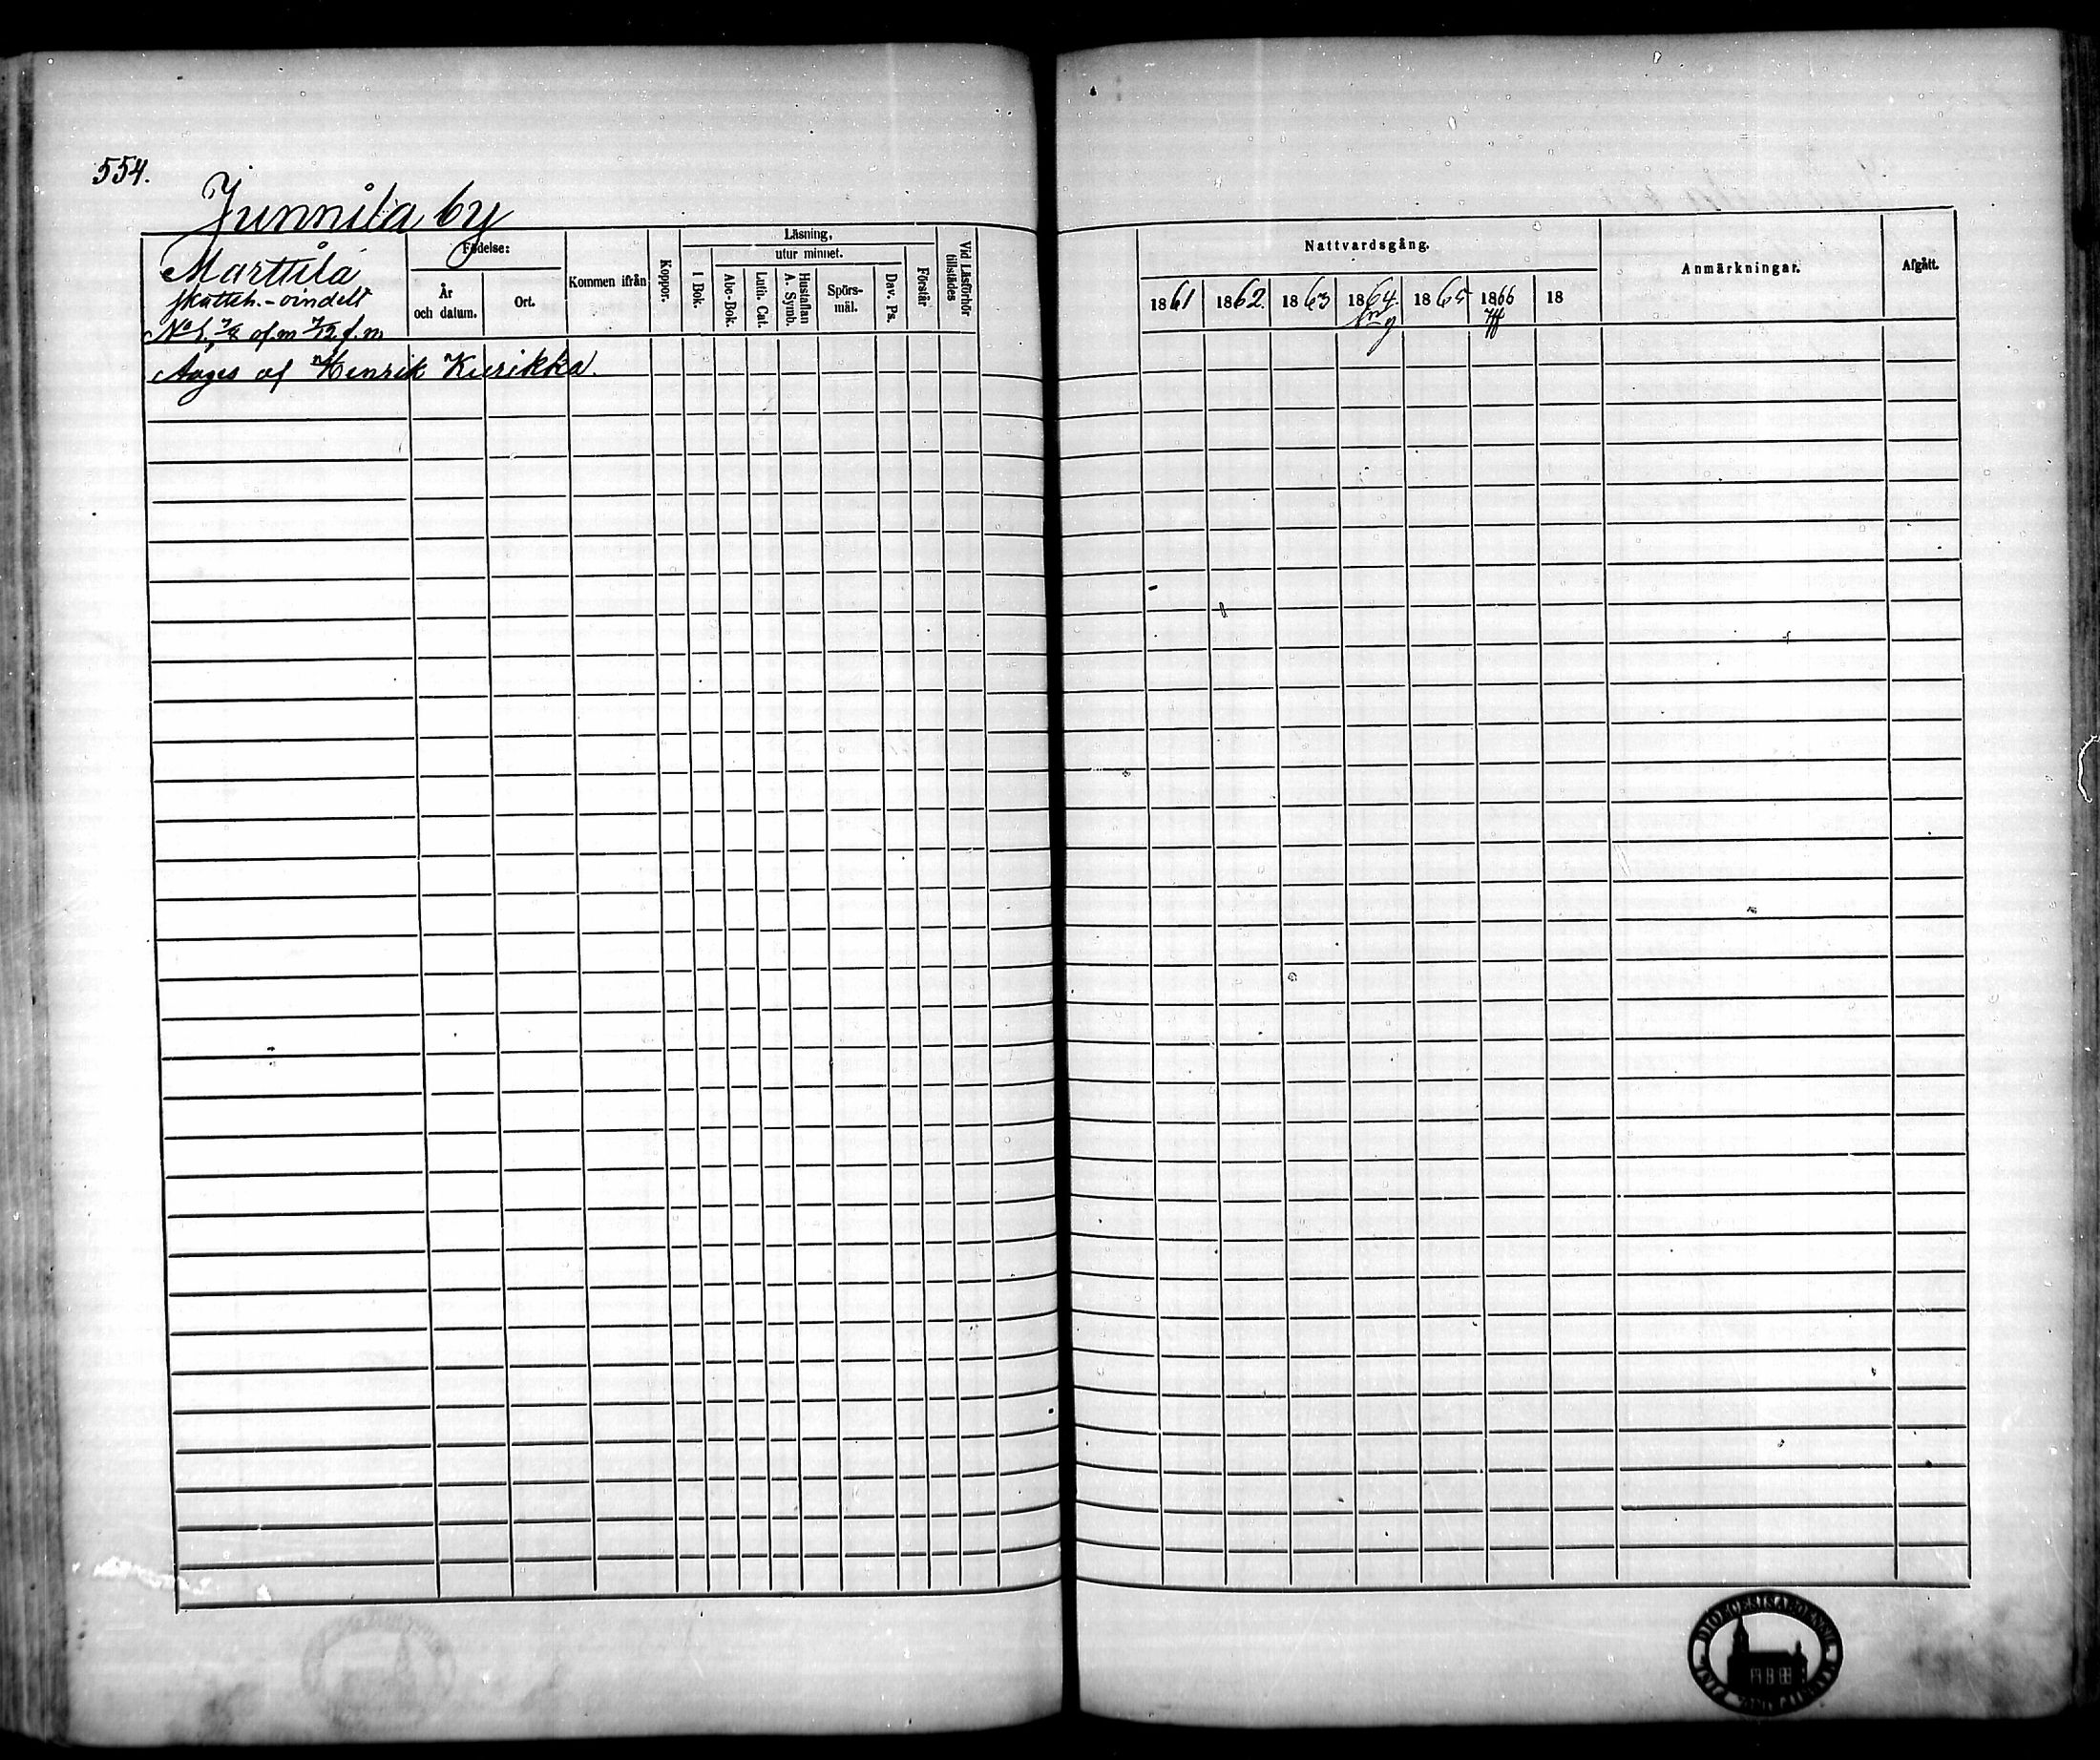 554.
Junnila by
Marttila
skatteh. - oindelt
No 1.
Aages af Henrik Kurikka.
Födelse:
År
och datum.
Ort.
Kommen ifrån
Koppor.
Läsning,
utur minnet.
I Bok.
Abc-Bok.
Luth. Cat.
Hustaflan
A. Symb.
Spörs-
mål.
Dav. Ps.
Förstår
Vid Läsförhör
tillstädes
Nattvardsgång.
1861 1862. 1863 1864. 1865 1866 18
Anmärkningar.
Afgått.